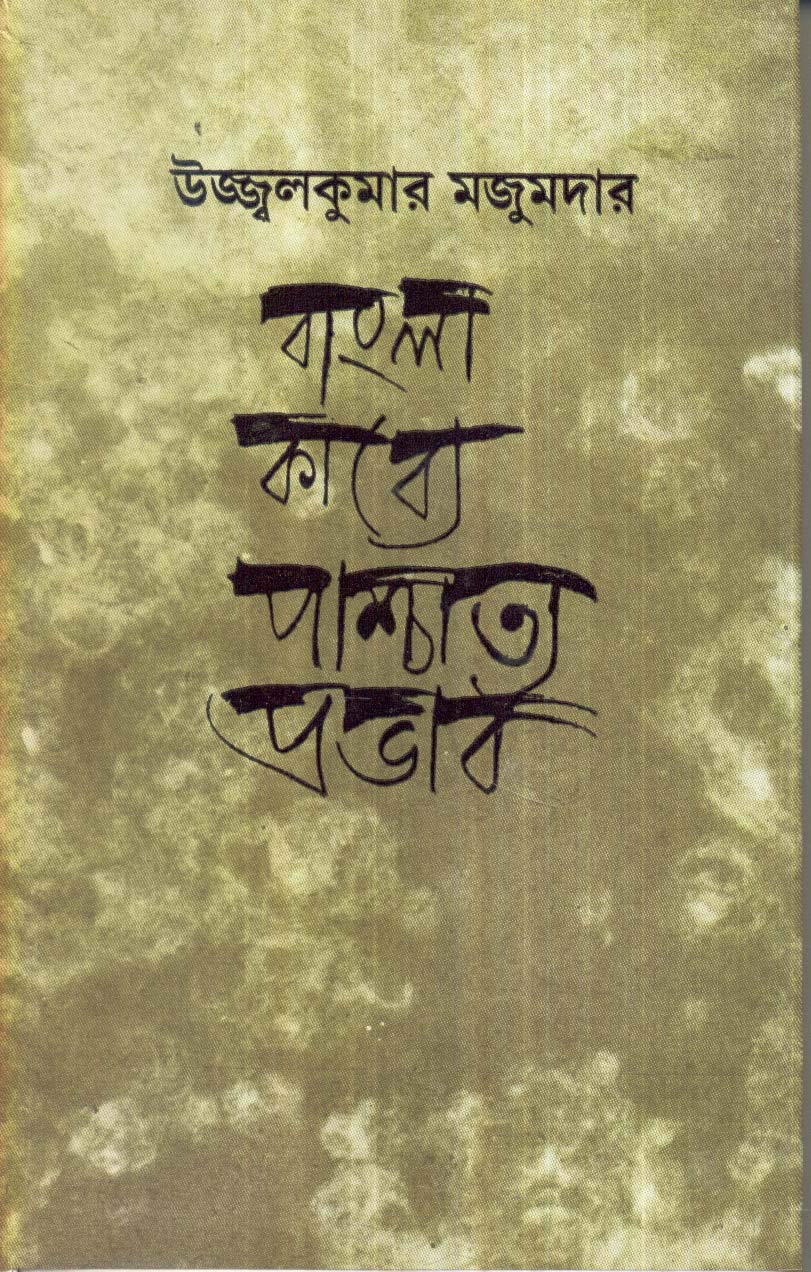 উজ্জ্বলকুমার মজুমদার
বাংলা
কাব্যে
পাশ্চাত্য
প্রভাব